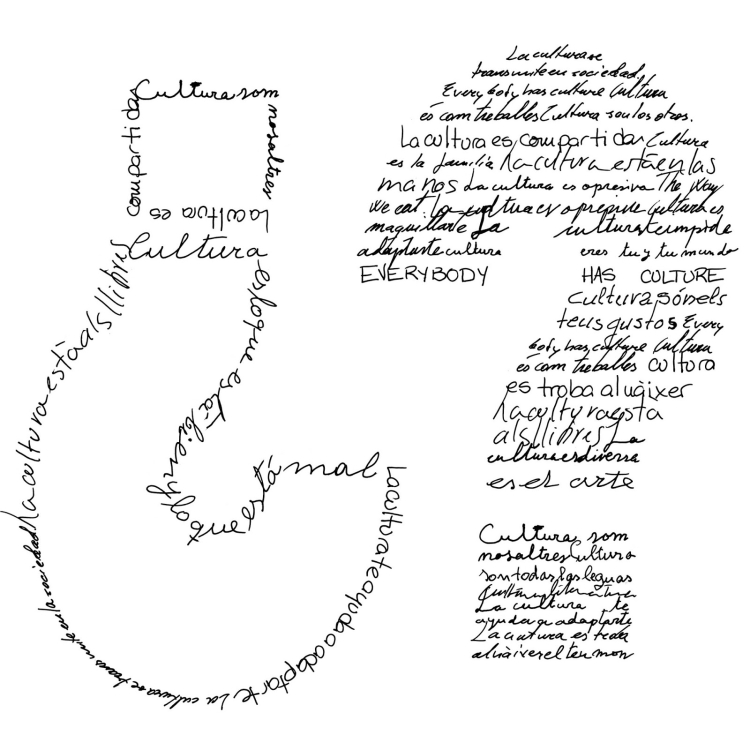 Cultura som
nosaltres
La cultura es
compartida
Cultura
es lo que está bien y lo que está mal
La cultura te ayuda a adaptarte La cultura se transmite en la sociedad La cultura està als llibres
La cultura se
transmite en sociedad.
Everybody has culture Cultura
és com treballes Cultura son los otros.
La cultura es compartida Cultura
es la família La cultura está en las
manos La cultura es opresiva The way
we eat. La cultura es opresive Cultura es
maquillarte La cultura t'cumpide
adaptarte cultura eres tu y tu mundo
EVERYBODY HAS CULTURE
Cultura són els
teus gustos Every
body has culture Cultura
és com treballes Cultura
es troba al uàixer
La cultura esta
als llibres La
cultura es diversa
es el arte
Cultura som
nosaltres Cultura
son todas las leguas
Cultura literatura
La cultura te
ayuda a adaptarte
La cultura es troba
al uàixer el teu mon